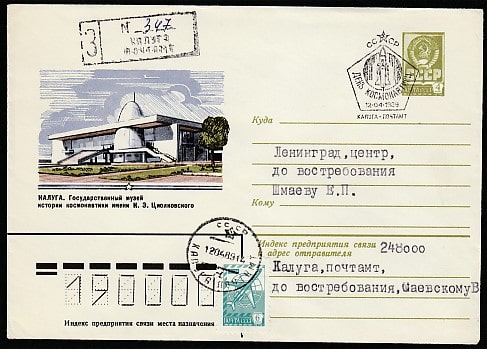 З
№ 347
КАЛУГА
ПОЧТАМТ
СССР
ДЕНЬ КОСМОНАВТИКИ
12-04-1989
КАЛУГА - ПОЧТАМТ
СССР
4
Куда
Ленинград, центр,
до востребования
Шмаеву Е.П.
Кому
КАЛУГА. Государственный музей
истории космонавтики имени К. Э. Циолковского
СССР
КАЛУГА
12048914
Индекс предприятия связи
и адрес отправителя
248000
Калуга, почтамт,
до востребования, Шаевскому В
190000
ПОЧТА СССР 6
Индекс предприятия связи места назначения